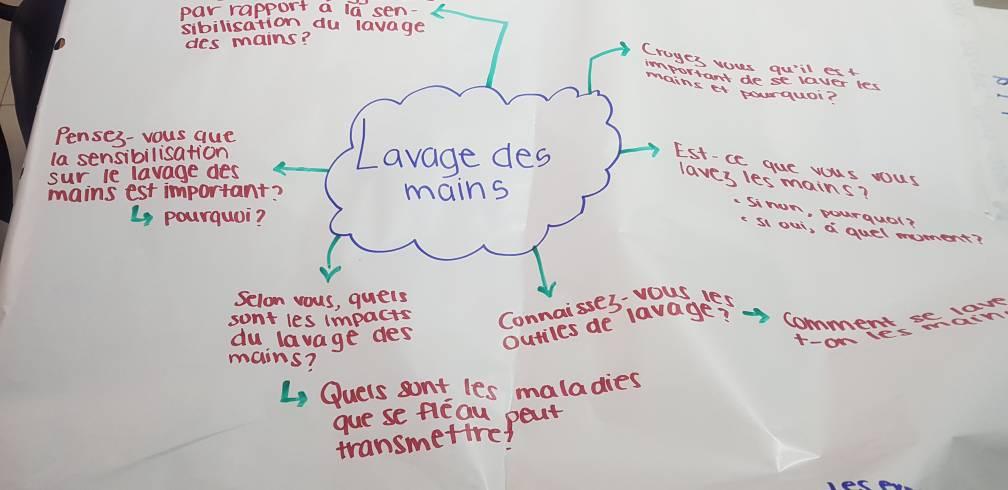 par rapport à la sen-
sibilisation du lavage
des mains?
Croyez vous qu'il est
important de se laver les
mains et pourquoi?
Pensez-vous que
la sensibilisation
sur le lavage des
mains est important?
↳ pourquoi?
Lavage des
mains
Est-ce que vous vous
lavez les mains?
• Si non, pourquoi?
• Si oui, à quel moment?
Selon vous, quels
sont les impacts
du lavage des
mains?
↳ Quels sont les maladies
que se fléau peut
transmettre?
Connaissez-vous les
outiles de lavage?
→ Comment se lave
t-on les main